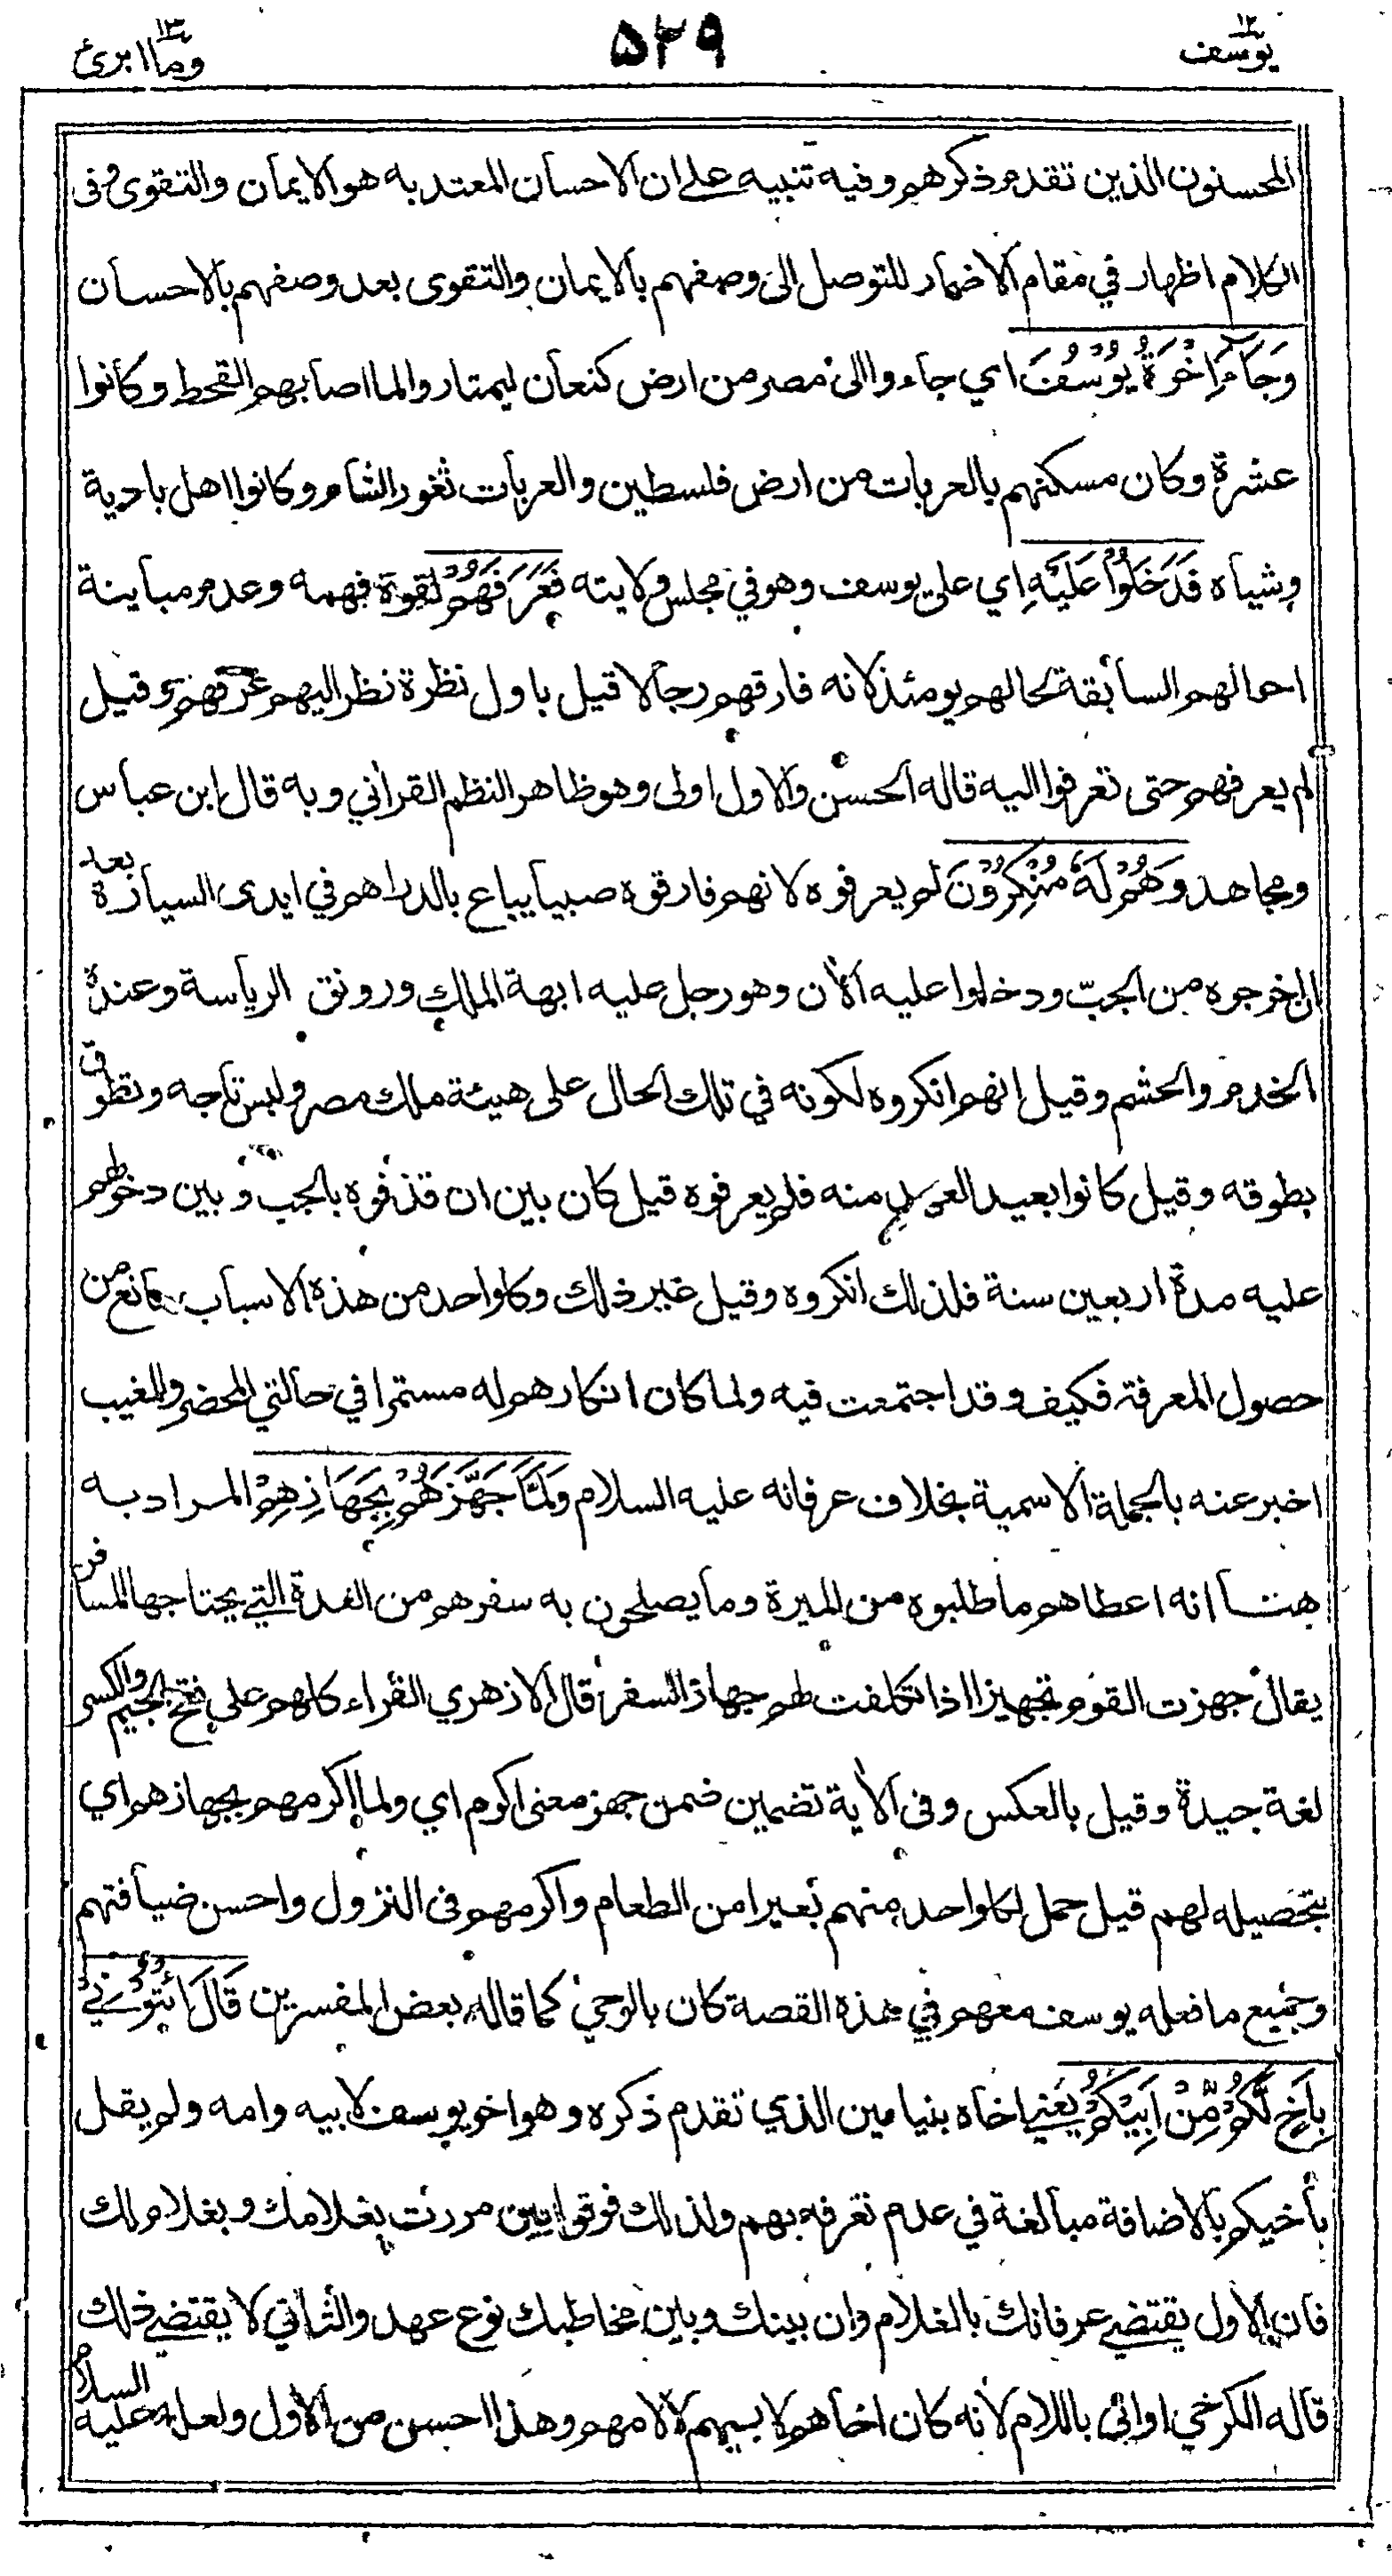 يوسف ١٢
٥٢٩
وما ابرئ ١٣
المحسنون الذين تقدم ذكرهم وفيه تنبيه على ان الاحسان المعتد به هو الايمان والتقوى وفى
الكلام اظهار في مقام الاضمار للتوصل الى وصفهم بالايمان والتقوى بعد وصفهم بالاحسان
وَجَآءَ اِخْوَةُ يُوْسُفَ اي جاءوا الى مصر من ارض كنعان ليمتاروا لما اصابهم القحط وكانوا
عشرة وكان مسكنهم بالعربات من ارض فلسطين والعربات ثغور الشام وكانوا اهل بادية
وشياه فَدَخَلُوْا عَلَيْهِ اي على يوسف وهو في مجلس ولايته فَعَرَفَهُمْ لقوة فهمه وعدم مباينة
احوالهم السابقة لحالهم يومئذ لانه فارقهم رجالا قيل باول نظرة نظر اليهم عرفهم وقيل
لم يعرفهم حتى تعرفوا اليه قاله الحسن والاول اولى وهو ظاهر النظم القرآني وبه قال ابن عباس
ومجاهد وَهُمْ لَهٗ مُنْكِرُوْنَ لم يعرفوه لانهم فارقوه صبيا يباع بالدراهم في ايدى السيارة بعد
ان اخرجوه من الجبّ ودخلوا عليه الآن وهو رجل عليه ابهة الملك ورونق الرياسة وعنده
الخدم والحشم وقيل انهم انكروه لكونه في تلك الحال على هيئة ملك مصر ولبس تاجه وتطوق
بطوقه وقيل كانوا بعيد العهد منه فلم يعرفوه قيل كان بين ان قذفوه بالجب وبين دخولهم
عليه مدة اربعين سنة فلذلك انكروه وقيل غير ذلك وكل واحد من هذه الاسباب مانع من
حصول المعرفة فكيف وقد اجتمعت فيه ولما كان انكارهم له مستمرا في حالتي المحضر والمغيب
اخبر عنه بالجملة الاسمية بخلاف عرفانه عليه السلام وَلَمَّا جَهَّزَهُمْ بِجَهَازِهِمْ المراد به
هنا انه اعطاهم ما طلبوه من الميرة وما يصلحون به سفرهم من العدة التي يحتاجها المسافر
يقال جهزت القوم تجهيزا اذا تكلفت لهم جهاز السفر قال الازهري القراء كلهم على فتح الجيم والكسر
لغة جيدة وقيل بالعكس وفى الآية تضمين ضمن جهز معنى اكرم اي ولما اكرمهم بجهازهم اي
بتحصيله لهم قيل حمل لكل واحد منهم بعيرا من الطعام واكرمهم فى النزول واحسن ضيافتهم
وجميع ما فعله يوسف معهم في هذه القصة كان بالوحي كما قاله بعض المفسرين قَالَ ائْتُوْنِيْ
بِاَخٍ لَّكُمْ مِّنْ اَبِيْكُمْ يعني اخاه بنيامين الذي تقدم ذكره وهو اخو يوسف لابيه وامه ولم يقل
بأخيكم بالاضافة مبالغة في عدم تعرفه بهم ولذلك فرقوا بين مررت بغلامك وبغلام لك
فان الاول يقتضي عرفانك بالغلام وان بينك وبين مخاطبك نوع عهد والثاني لا يقتضي ذلك
قاله الكرخي اواتى باللام لانه كان اخاهم لابيهم لا لامهم وهذا احسن من الاول ولعله عليه السلام